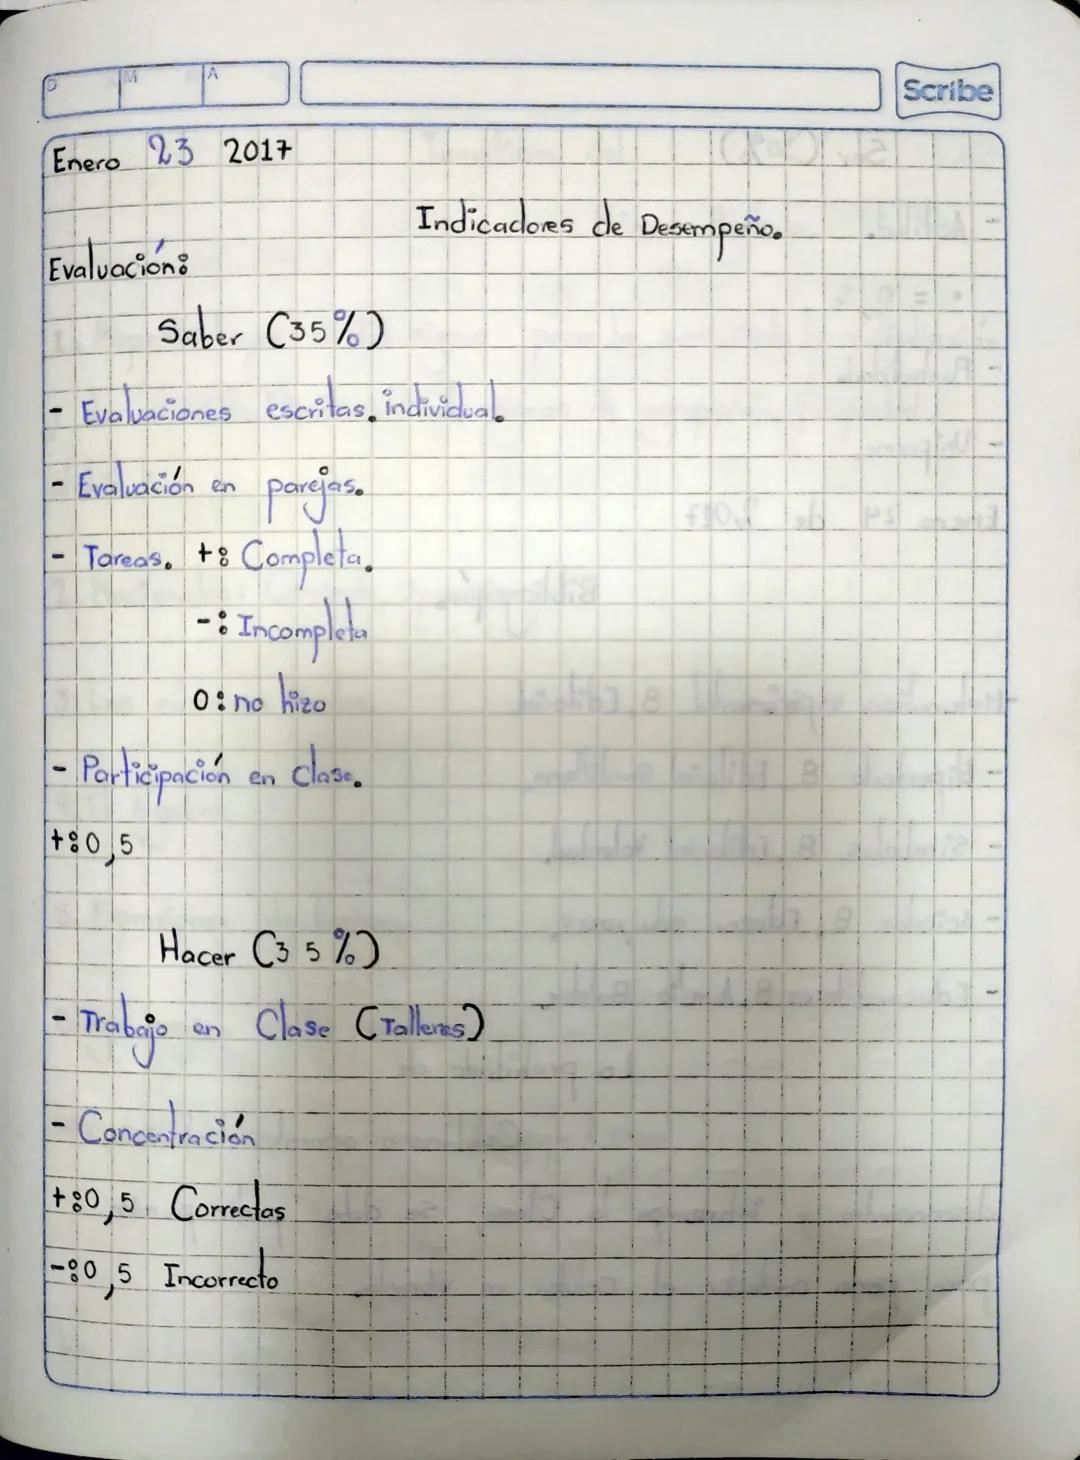 D M A
Scribe
Enero 23 2017
Indicadores de Desempeño.
Evaluación:
Saber (35%)
- Evaluaciones escritas. individual.
- Evaluación en parejas.
- Tareas. +: Completa.
-: Incompleta
0: no hizo
- Participación en clase.
+:0,5
Hacer (35%)
- Trabajo en Clase (Talleres)
- Concentración
+:0,5 Correctas
-:0,5 Incorrecto